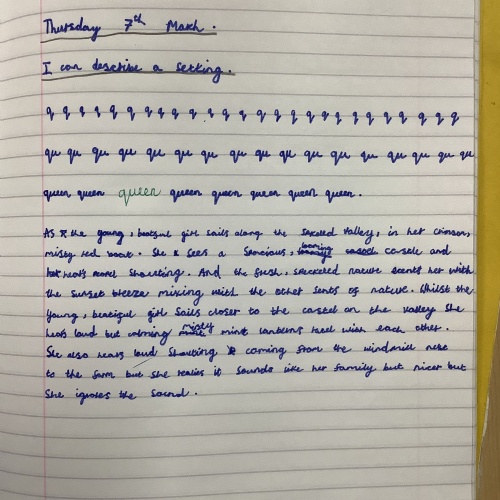 Thursday 7th March.
I can describe a setting.
q q q q q q q q q q q q q q q q q q q q q q q q q
qu qu qu qu qu qu qu qu qu qu qu qu qu qu qu qu qu
queen queen queen queen queen queen queen queen.
As the young, beatiful girl sails along the valley, in her crimson,
misty red boat. She sees a looming castle and
hears shouting. And the fresh, nature scents her with
the sunset breeze mixing with the other sents of nature. Whilst the
young, beatiful girl sails closer to the castel on the valley she
hears loud but calming misty mint lanterns with each other.
She also hears loud shouting coming from the windmill next
to the farm but she it sounds like her family but nicer but
she ignores the sound.